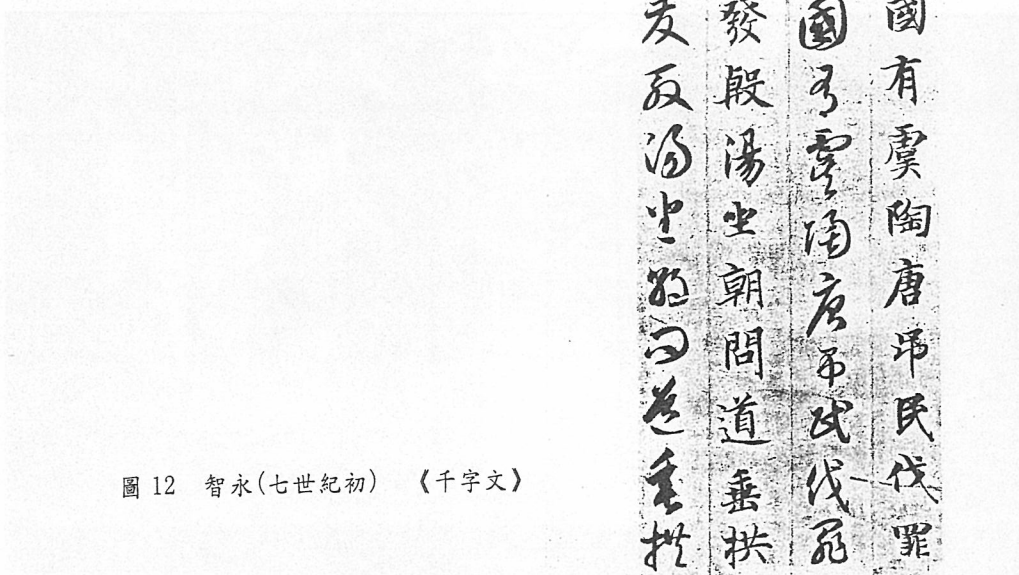 國有虞陶唐吊民伐罪
國有虞陶唐吊民伐罪
發殷湯坐朝問道垂拱
發殷湯坐朝問道垂拱
圖 12 智永(七世紀初) 《千字文》